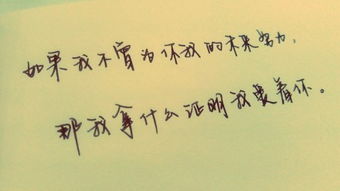 如果我不曾为你我的未来努力，
那我拿什么证明我爱着你。